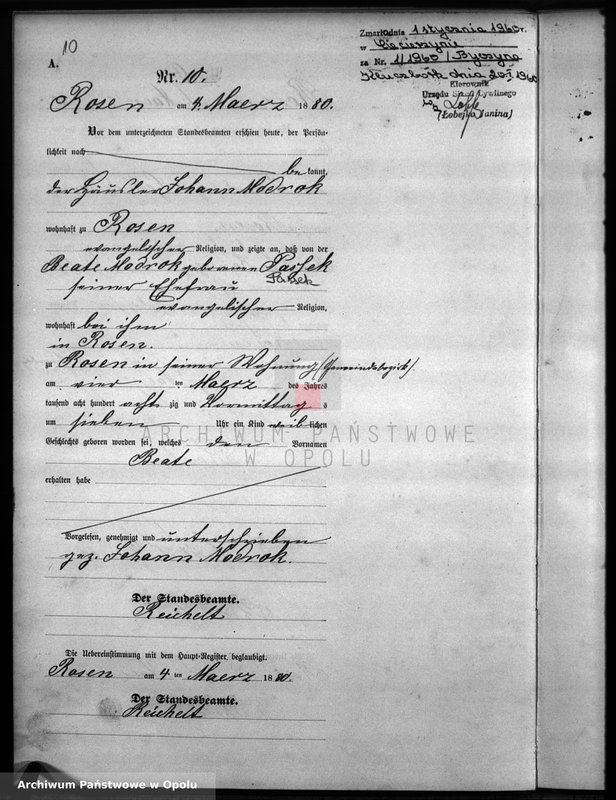 10
A.
Nr. 10.
Rosen am 4. Maerz 1880.
Vor dem unterzeichneten Standesbeamten erschien heute, der Persön-
lichkeit nach
be kannt,
der Häusler Johann Modrok
wohnhaft zu Rosen
evangelischer Religion, und zeigte an, daß von der
Beate Modrok geborenen Passek
Pasek
seiner Ehefrau
evangelischer Religion,
wohnhaft bei ihm
in Rosen.
zu Rosen in seiner Wohnung (Gemeindebezirk).
am vier ten Maerz des Jahres
tausend acht hundert acht zig und Vormittag s
um sieben Uhr ein Kind weib lichen
Geschlechts geboren worden sei, welches den Vornamen
Beate
erhalten habe
Vorgelesen, genehmigt und unterschrieben
gez. Johann Modrok.
Der Standesbeamte.
Reichelt
Die Uebereinstimmung mit dem Haupt-Register beglaubigt.
Rosen am 4 ten Maerz 1880.
Der Standesbeamte.
Reichelt
Zmarł dnia 1 stycznia 1960 r.
w Ciecierzynie
za Nr. 1/1960/Byczyna
Kluczbork dnia 20.I.1960
Kierownik
Urzędu Stanu Cywilnego
(Łobejko Janina)
ARCHIWUM PAŃSTWOWE
W OPOLU
Archiwum Państwowe w Opolu